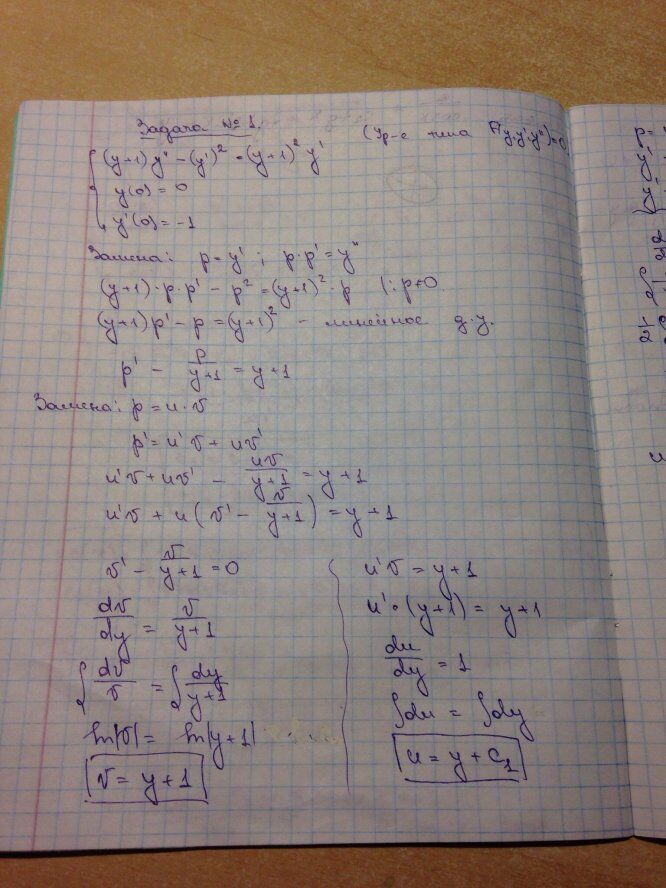 Задача № 1. (Ур-е типа F(y,y',y'')=0
(y+1)y'' - (y')² = (y+1)² y'
y(0) = 0
y'(0) = -1
Замена: p = y' ; p·p' = y''
(y+1)·p·p' - p² = (y+1)²·p (:p≠0
(y+1)p' - p = (y+1)² - линейное д.у.
p' - p/(y+1) = y+1
Замена: p = u·v
p' = u'v + uv'
u'v + uv' - uv/(y+1) = y+1
u'v + u(v' - v/(y+1)) = y+1
v' - v/(y+1) = 0
dv/dy = v/(y+1)
∫dv/v = ∫dy/(y+1)
ln|v| = ln|y+1|
v = y+1
u'v = y+1
u'·(y+1) = y+1
du/dy = 1
∫du = ∫dy
u = y + C₁
p =